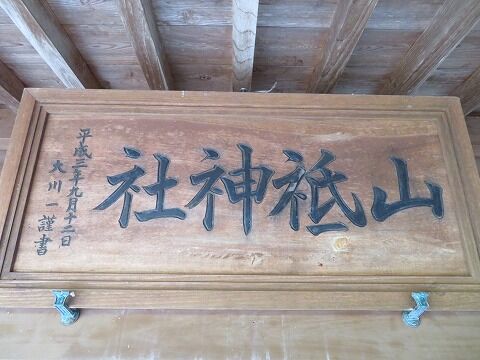 山祇神社
平成二年九月十二日
大川一謹書